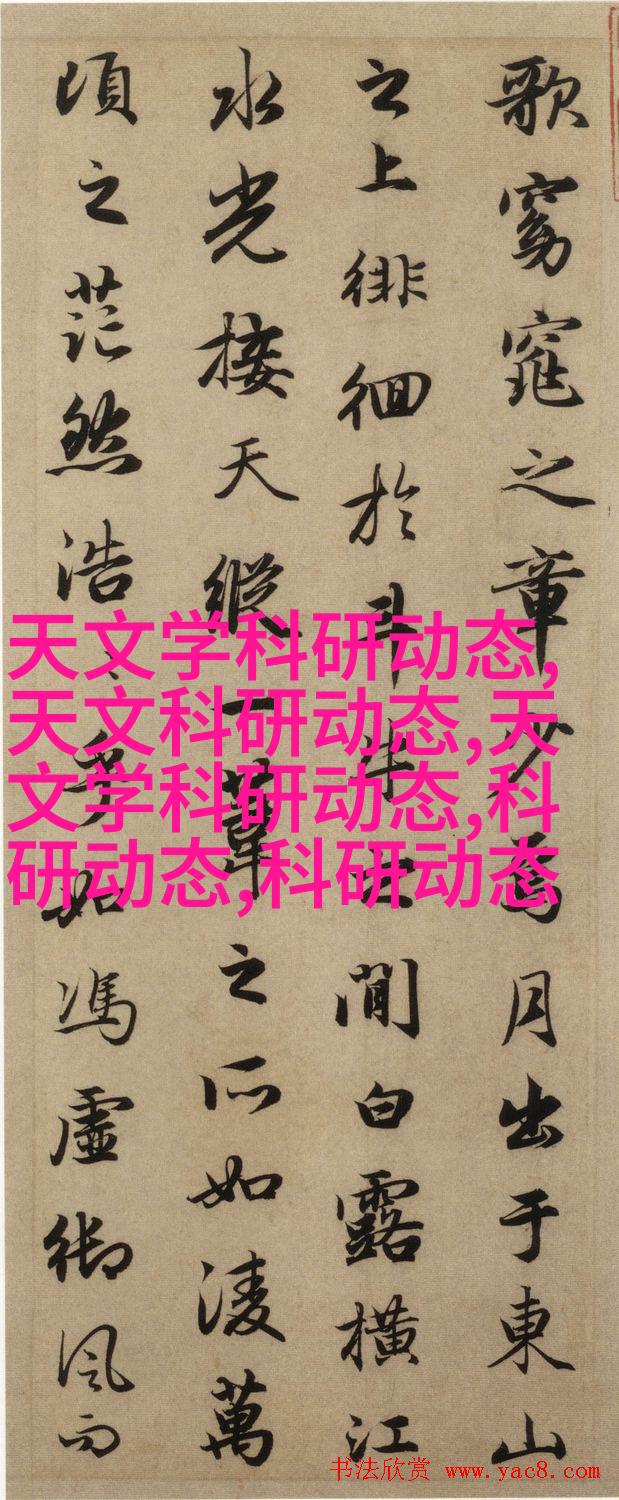 歌窈窕之章少焉月出于東山
之上徘徊於斗牛之間白露橫江
水光接天縱一葦之所如淩萬
頃之茫然浩々乎如馮虛御風而
天文学科研动态,
天文科研动态,天
文学科研动态,科
研动态,科研动态
书法欣赏 www.yac8.com